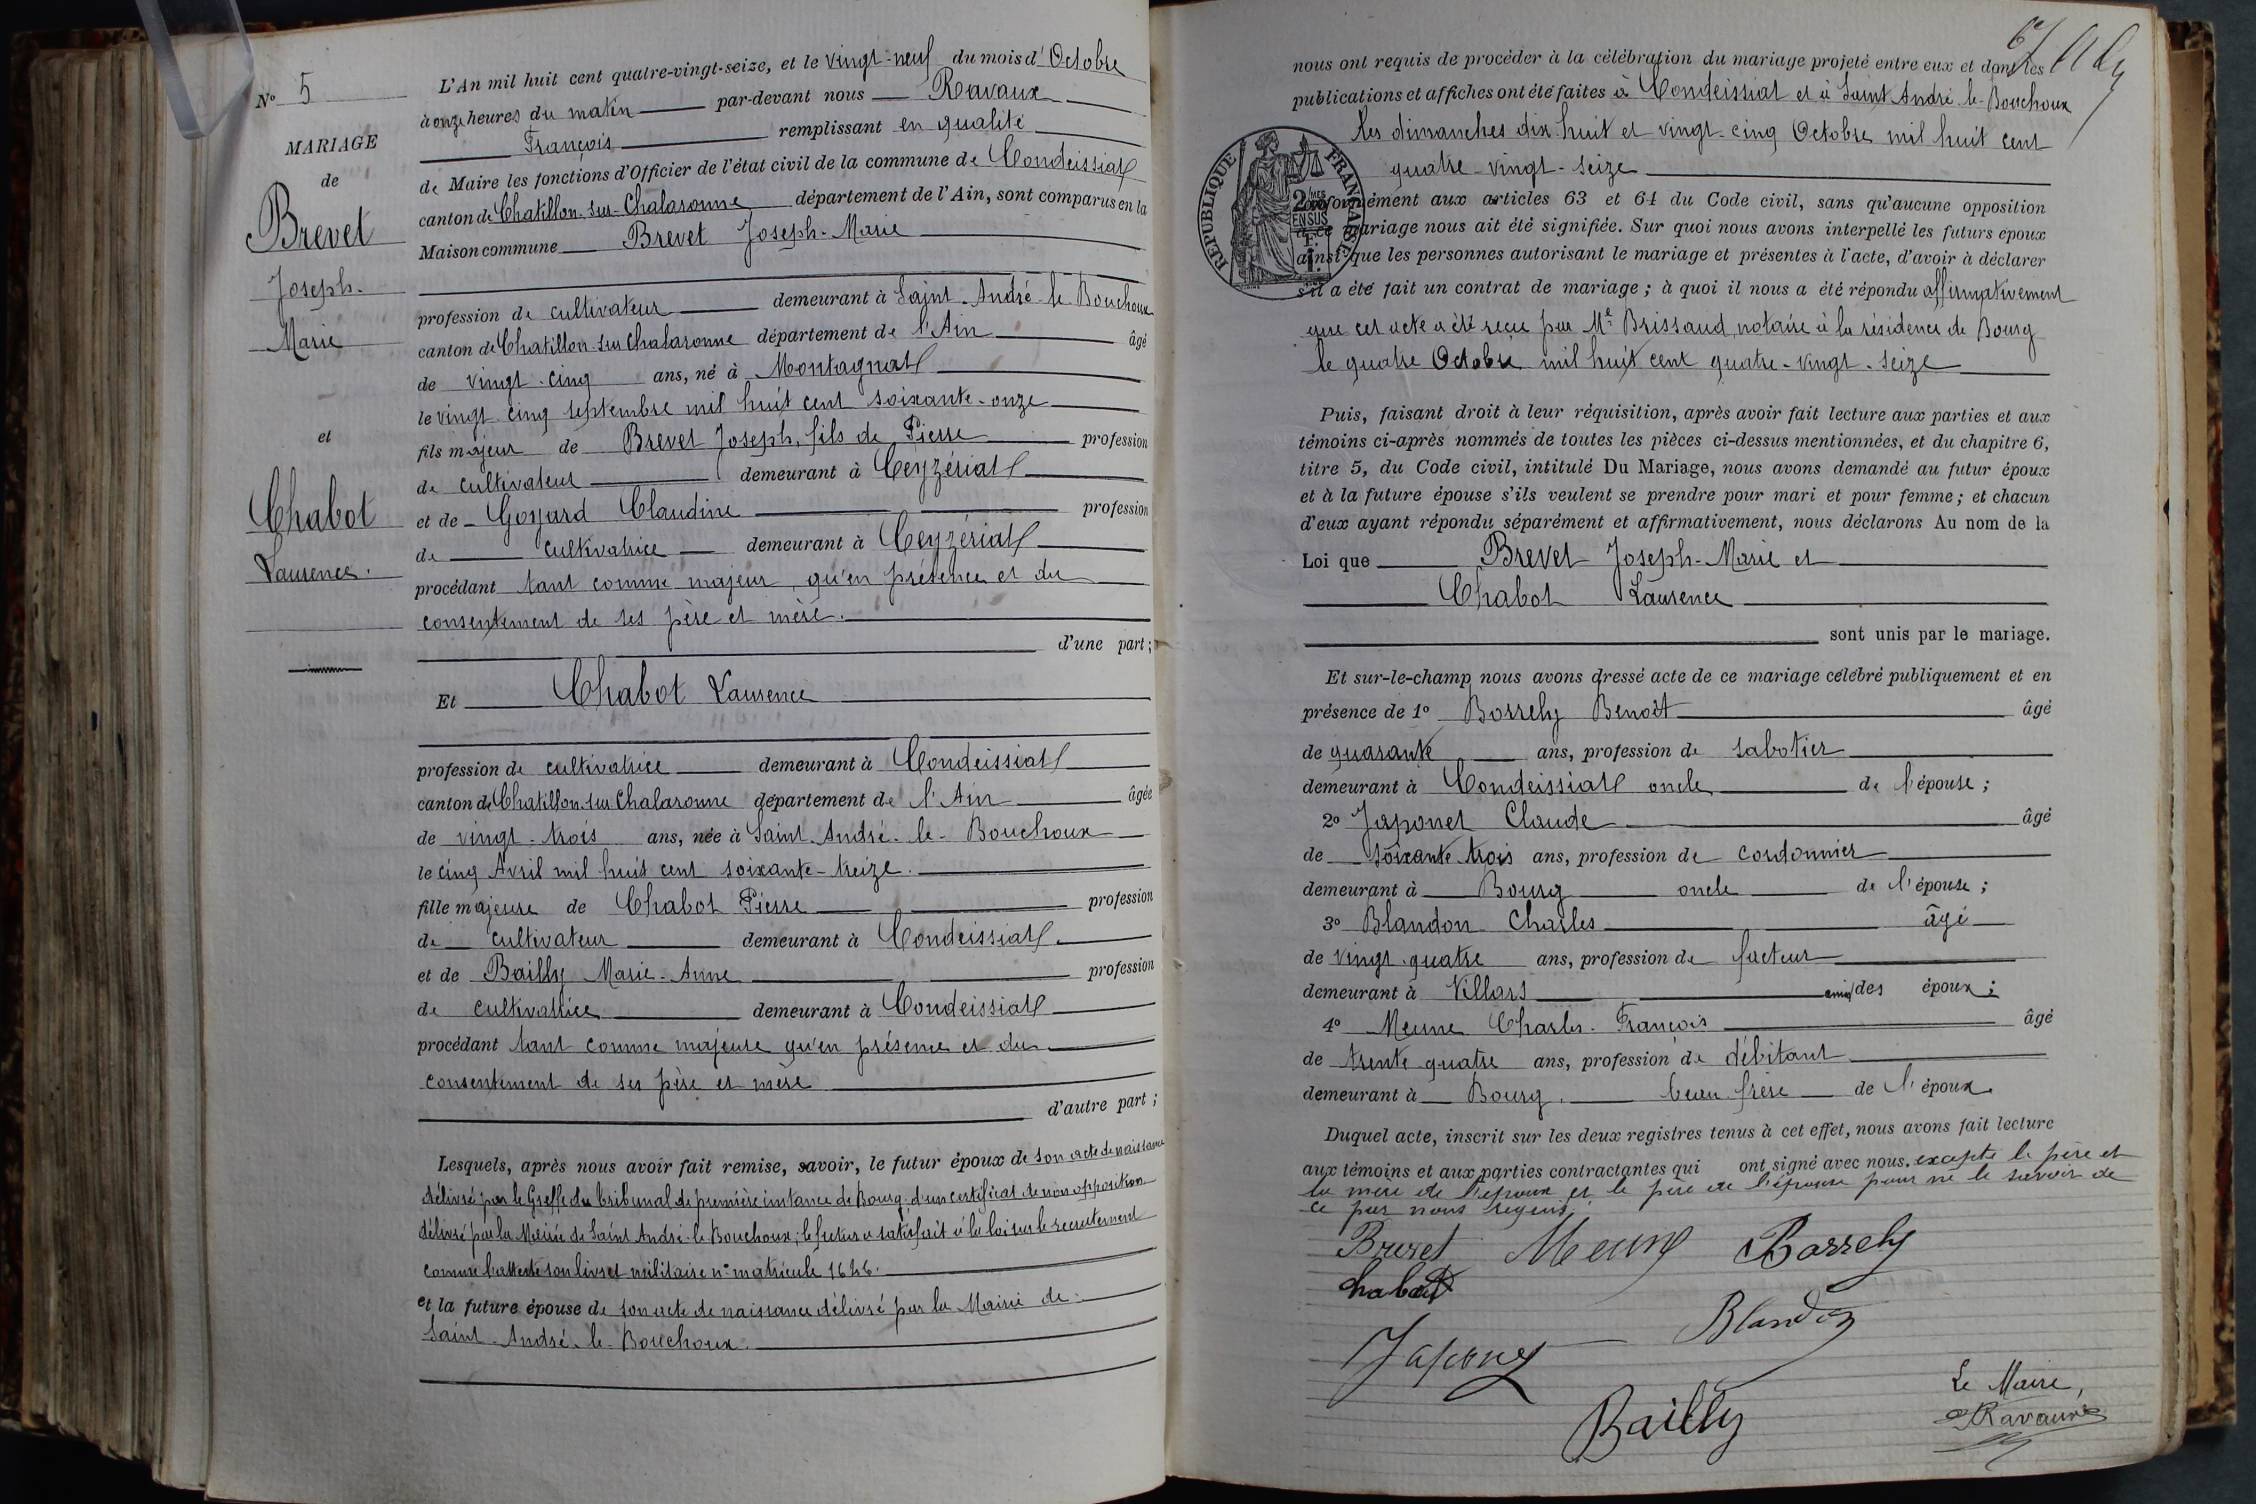 N° 5
MARIAGE
de
Brevet
Joseph-
Marie
et
Chabot
Laurence.
L'An mil huit cent quatre-vingt-seize, et le vingt-neuf du mois d'Octobre
à onze heures du matin par-devant nous Ravaux
François remplissant en qualité
de Maire les fonctions d'Officier de l'état civil de la commune de Condeissiat
canton de Chatillon-sur-Chalaronne département de l'Ain, sont comparus en la
Maison commune Brevet Joseph-Marie
profession de cultivateur demeurant à Saint-André-le-Bouchoux
canton de Chatillon-sur-Chalaronne département de l'Ain âgé
de vingt-cinq ans, né à Montagnat
le vingt cinq septembre mil huit cent soixante-onze
fils majeur de Brevet Joseph, fils de Pierre profession
de cultivateur demeurant à Ceyzériat
et de Goyard Claudine profession
de cultivatrice demeurant à Ceyzériat
procédant tant comme majeur, qu'en présence et du
consentement de ses père et mère.
d'une part;
Et Chabot Laurence
profession de cultivatrice demeurant à Condeissiat
canton de Chatillon-sur-Chalaronne département de l'Ain âgée
de vingt-trois ans, née à Saint-André-le-Bouchoux
le cinq Avril mil huit cent soixante-treize.
fille majeure de Chabot Pierre profession
de cultivateur demeurant à Condeissiat.
et de Bailly Marie-Anne profession
de cultivatrice demeurant à Condeissiat
procédant tant comme majeure qu'en présence et du
consentement de ses père et mère
d'autre part;
Lesquels, après nous avoir fait remise, savoir, le futur époux de son acte de naissance
délivré par le Greffe du tribunal de première instance de Bourg; d'un certificat de non opposition
délivré par la Mairie de Saint-André-le-Bouchoux; le futur a satisfait à la loi sur le recrutement
comme l'atteste son livret militaire n° matricule 1646.
et la future épouse de son acte de naissance délivré par la Mairie de
Saint-André-le-Bouchoux.
nous ont requis de procéder à la célébration du mariage projeté entre eux et dont les
publications et affiches ont été faites à Condeissiat et à Saint-André-le-Bouchoux
les dimanches dix-huit et vingt-cinq Octobre mil huit cent
quatre-vingt-seize
RÉPUBLIQUE FRANÇAISE
conformément aux articles 63 et 64 du Code civil, sans qu'aucune opposition
à ce mariage nous ait été signifiée. Sur quoi nous avons interpellé les futurs époux
ainsi que les personnes autorisant le mariage et présentes à l'acte, d'avoir à déclarer
s'il a été fait un contrat de mariage; à quoi il nous a été répondu affirmativement
que cet acte a été reçu par Me Brissaud, notaire à la résidence de Bourg
le quatre Octobre mil huit cent quatre-vingt-seize
Puis, faisant droit à leur réquisition, après avoir fait lecture aux parties et aux
témoins ci-après nommés de toutes les pièces ci-dessus mentionnées, et du chapitre 6,
titre 5, du Code civil, intitulé Du Mariage, nous avons demandé au futur époux
et à la future épouse s'ils veulent se prendre pour mari et pour femme; et chacun
d'eux ayant répondu séparément et affirmativement, nous déclarons Au nom de la
Loi que Brevet Joseph-Marie et
Chabot Laurence
sont unis par le mariage.
Et sur-le-champ nous avons dressé acte de ce mariage célébré publiquement et en
présence de 1° Borrely Benoît âgé
de quarante ans, profession de sabotier
demeurant à Condeissiat oncle de l'épouse;
2° Japonet Claude âgé
de soixante-trois ans, profession de cordonnier
demeurant à Bourg oncle de l'épouse;
3° Blandon Charles âgé
de vingt-quatre ans, profession de facteur
demeurant à Villars ami des époux;
4° Meune Charles-François âgé
de trente quatre ans, profession de débitant
demeurant à Bourg. beau frère de l'époux.
Duquel acte, inscrit sur les deux registres tenus à cet effet, nous avons fait lecture
aux témoins et aux parties contractantes qui ont signé avec nous, excepté le père et
la mère de l'époux et le père de l'épouse pour ne le savoir de
ce par nous requis.
Brevet Meune Borrely
Chabot
Blandon
Japonet
Bailly
Le Maire,
Ravaux